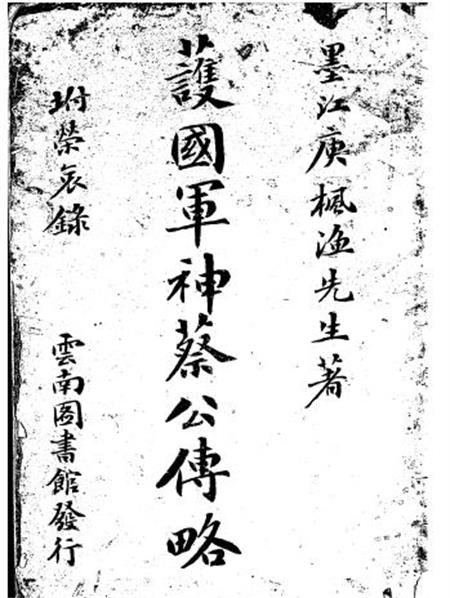 墨江庾楓漁先生著
護國軍神蔡公傳略
坿榮哀錄
雲南圖書館發行